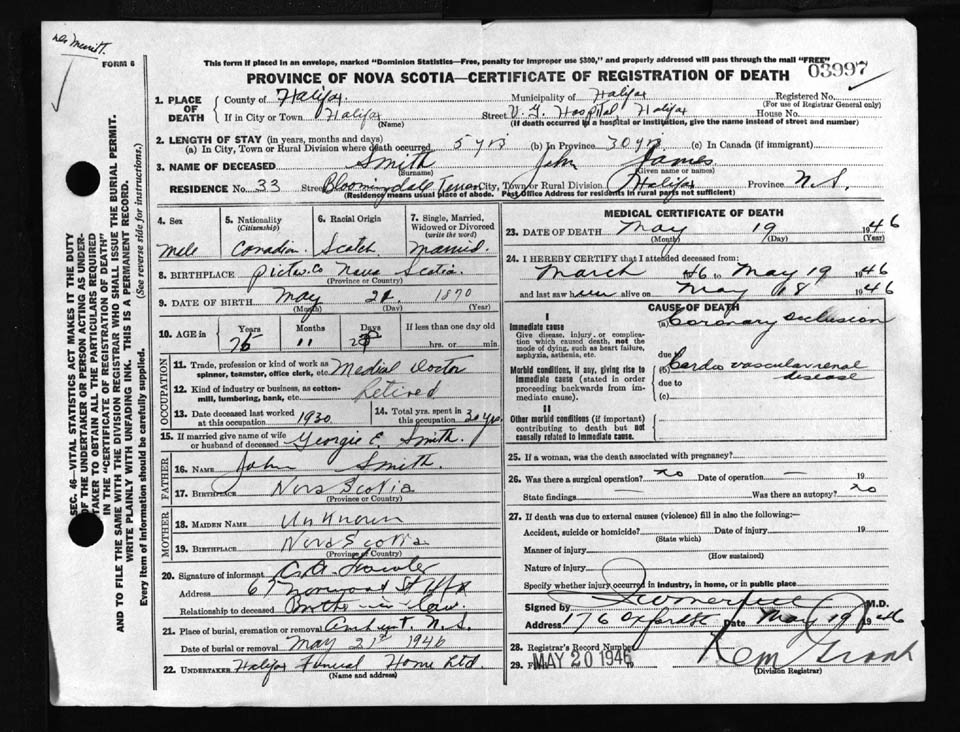 FORM 6
This form if placed in an envelope, marked "Dominion Statistics—Free, penalty for improper use $300," and properly addressed will pass through the mail "FREE"
PROVINCE OF NOVA SCOTIA—CERTIFICATE OF REGISTRATION OF DEATH
03997
1. PLACE OF DEATH
County of Halifax Municipality of Halifax Registered No.
(For use of Registrar General only)
If in City or Town Halifax Street V. G. Hospital, Halifax House No.
(Name) (If death occurred in a hospital or institution, give the name instead of street and number)
2. LENGTH OF STAY (in years, months and days)
(a) In City, Town or Rural Division where death occurred 5 yrs (b) In Province 30 yrs (c) In Canada (if immigrant)
3. NAME OF DECEASED Smith John James
(Surname) (Given name or names)
RESIDENCE No. 33 Street Bloomingdale Terrace City, Town or Rural Division Halifax Province N.S.
(Residence means usual place of abode. Post Office Address for residents in rural parts not sufficient)
4. Sex
Male
5. Nationality
(Citizenship)
Canadian
6. Racial Origin
Scotch
7. Single, Married, Widowed or Divorced
(write the word)
Married.
8. BIRTHPLACE Pictou Co Nova Scotia
(Province or Country)
9. DATE OF BIRTH May 21 1870
(Month) (Day) (Year)
10. AGE in
Years Months Days If less than one day old
75 11 hrs. or min.
OCCUPATION
11. Trade, profession or kind of work as spinner, teamster, office clerk, etc. Medical Doctor
12. Kind of industry or business, as cotton-mill, lumbering, bank, etc. Retired
13. Date deceased last worked at this occupation 1930
14. Total yrs. spent in this occupation 30 yrs
15. If married give name of wife or husband of deceased Georgie E Smith.
FATHER
16. NAME John Smith.
17. BIRTHPLACE Nova Scotia
(Province or Country)
MOTHER
18. MAIDEN NAME Unknown
19. BIRTHPLACE Nova Scotia
(Province or Country)
20. Signature of informant
Address 67 St Hfx
Relationship to deceased Brother-in-law.
21. Place of burial, cremation or removal Amherst. N.S.
Date of burial or removal May 21st 1946
22. UNDERTAKER Halifax Funeral Home Ltd.
(Name and address)
MEDICAL CERTIFICATE OF DEATH
23. DATE OF DEATH May 19 1946
(Month) (Day) (Year)
24. I HEREBY CERTIFY that I attended deceased from:
March 46 to May 19 1946
and last saw him alive on May 18 1946
CAUSE OF DEATH
I
Immediate cause
Give disease, injury, or complication which caused death, not the mode of dying, such as heart failure, asphyxia, asthenia, etc.
(a) Coronary occlusion
due to
Morbid conditions, if any, giving rise to immediate cause (stated in order proceeding backwards from immediate cause).
(b) Cardio vascular renal disease
due to
(c)
II
Other morbid conditions (if important) contributing to death but not causally related to immediate cause.
25. If a woman, was the death associated with pregnancy?
26. Was there a surgical operation? no Date of operation — 19
State findings — Was there an autopsy? no
27. If death was due to external causes (violence) fill in also the following:—
Accident, suicide or homicide? Date of injury 19
(State which)
Manner of injury
(How sustained)
Nature of injury
Specify whether injury occurred in industry, in home, or in public place
Signed by M.D.
Address 176 Oxford St Date May 19 1946
28. Registrar's Record Number
29. MAY 20 1946
(Division Registrar)
SEC. 46—VITAL STATISTICS ACT MAKES IT THE DUTY OF THE UNDERTAKER OR PERSON ACTING AS UNDERTAKER TO OBTAIN ALL THE PARTICULARS REQUIRED IN THE "CERTIFICATE OF REGISTRATION OF DEATH" AND TO FILE THE SAME WITH THE DIVISION REGISTRAR WHO SHALL ISSUE THE BURIAL PERMIT.
WRITE PLAINLY WITH UNFADING INK. THIS IS A PERMANENT RECORD.
Every item of information should be carefully supplied. (See reverse side for instructions.)